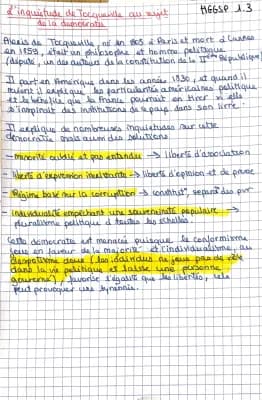 L'inquiétude de Tocqueville au sujet
de la démocratie
HGGSP 1.3
Alexis de Tocqueville, né en 1805 à Paris et mort à Cannes
en 1859, était un philosophe et homme politique
(député, un des auteurs de la constitution de la IIème République)
Il part en Amérique dans les années 1830, et quand il
revient il explique les particularités américaines politique
et le bénéfice que la France pourrait en tirer si elle
s'inspirait des institutions de ce pays dans son livre.
Il explique de nombreuses inquiétudes sur cette
démocratie mais aussi des solutions
- minorité oublié et pas entendue → liberté d'association
- liberté d'expression inexistante → liberté d'opinion et de presse
- Régime basé sur la corruption → constitut°, séparat° des pvr
- individualité empêchant une souveraineté populaire →
pluralisme politique à toutes les échelles
Cette démocratie est menacée puisque le conformisme
joue en faveur de la majorité et l'individualisme, au
despotisme doux (les individus ne joue pas de rôle
dans la vie politique et laisse une personne
gouverné), favorise l'égalité que les libertés, cela
peut provoquer une tyrannie.